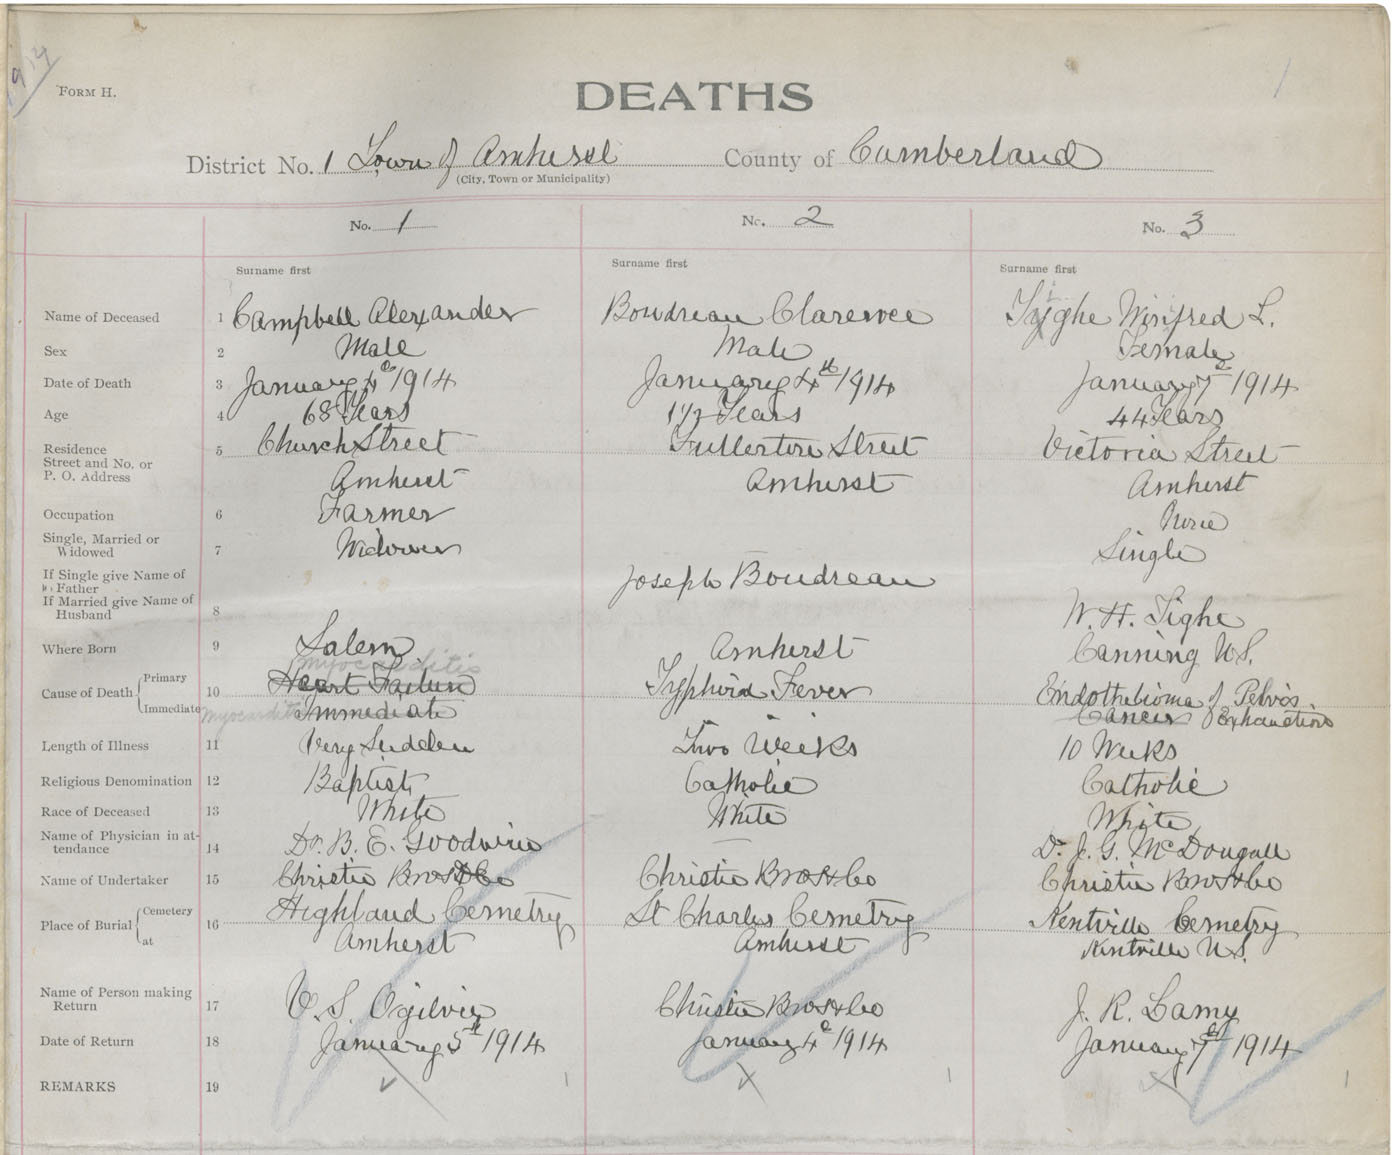 1914
FORM H.
1
DEATHS
District No. 1 Town of Amherst County of Cumberland
(City, Town or Municipality)
No. 1 No. 2 No. 3
Surname first Surname first Surname first
Name of Deceased 1 Campbell Alexander Boudreau Clarence Tighe Winifred L.
Sex 2 Male Male Female
Date of Death 3 January 4th 1914 January 4th 1914 January 7th 1914
Age 4 68 Years 1½ Years 44 Years
Residence 5 Church Street Fullerton Street Victoria Street
Street and No. or
P. O. Address Amherst Amherst Amherst
Occupation 6 Farmer None
Single, Married or
Widowed 7 Widower Single
If Single give Name of
Father Joseph Boudreau
If Married give Name of
Husband 8 W. H. Tighe
Where Born 9 Salem Amherst Canning N.S.
myocarditis
Cause of Death Primary 10 Heart Failure Typhoid Fever Endothelioma of Pelvis
Immediate myocarditis Immediate Cancer of Exhaustion
Length of Illness 11 Very Sudden Two Weeks 10 Weeks
Religious Denomination 12 Baptist Catholic Catholic
Race of Deceased 13 White White White
Name of Physician in at-
tendance 14 Dr. B. E. Goodwin — Dr. J. G. McDougall
Name of Undertaker 15 Christie Bros & Co Christie Bros & Co Christie Bros & Co
Place of Burial Cemetery 16 Highland Cemetry St Charles Cemetry Kentville Cemetry
at Amherst Amherst Kentville N.S.
Name of Person making
Return 17 V. S. Ogilvie Christie Bros & Co J. R. Lamy
Date of Return 18 January 5th 1914 January 4th 1914 January 7th 1914
REMARKS 19 1 1 1